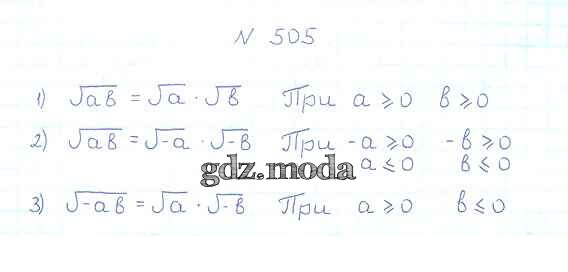 N 505
1) √ab = √a · √b При a ⩾ 0 b ⩾ 0
2) √ab = √-a · √-b При -a ⩾ 0 -b ⩾ 0
a ⩽ 0 b ⩽ 0
gdz.moda
3) √-ab = √a · √-b При a ⩾ 0 b ⩽ 0